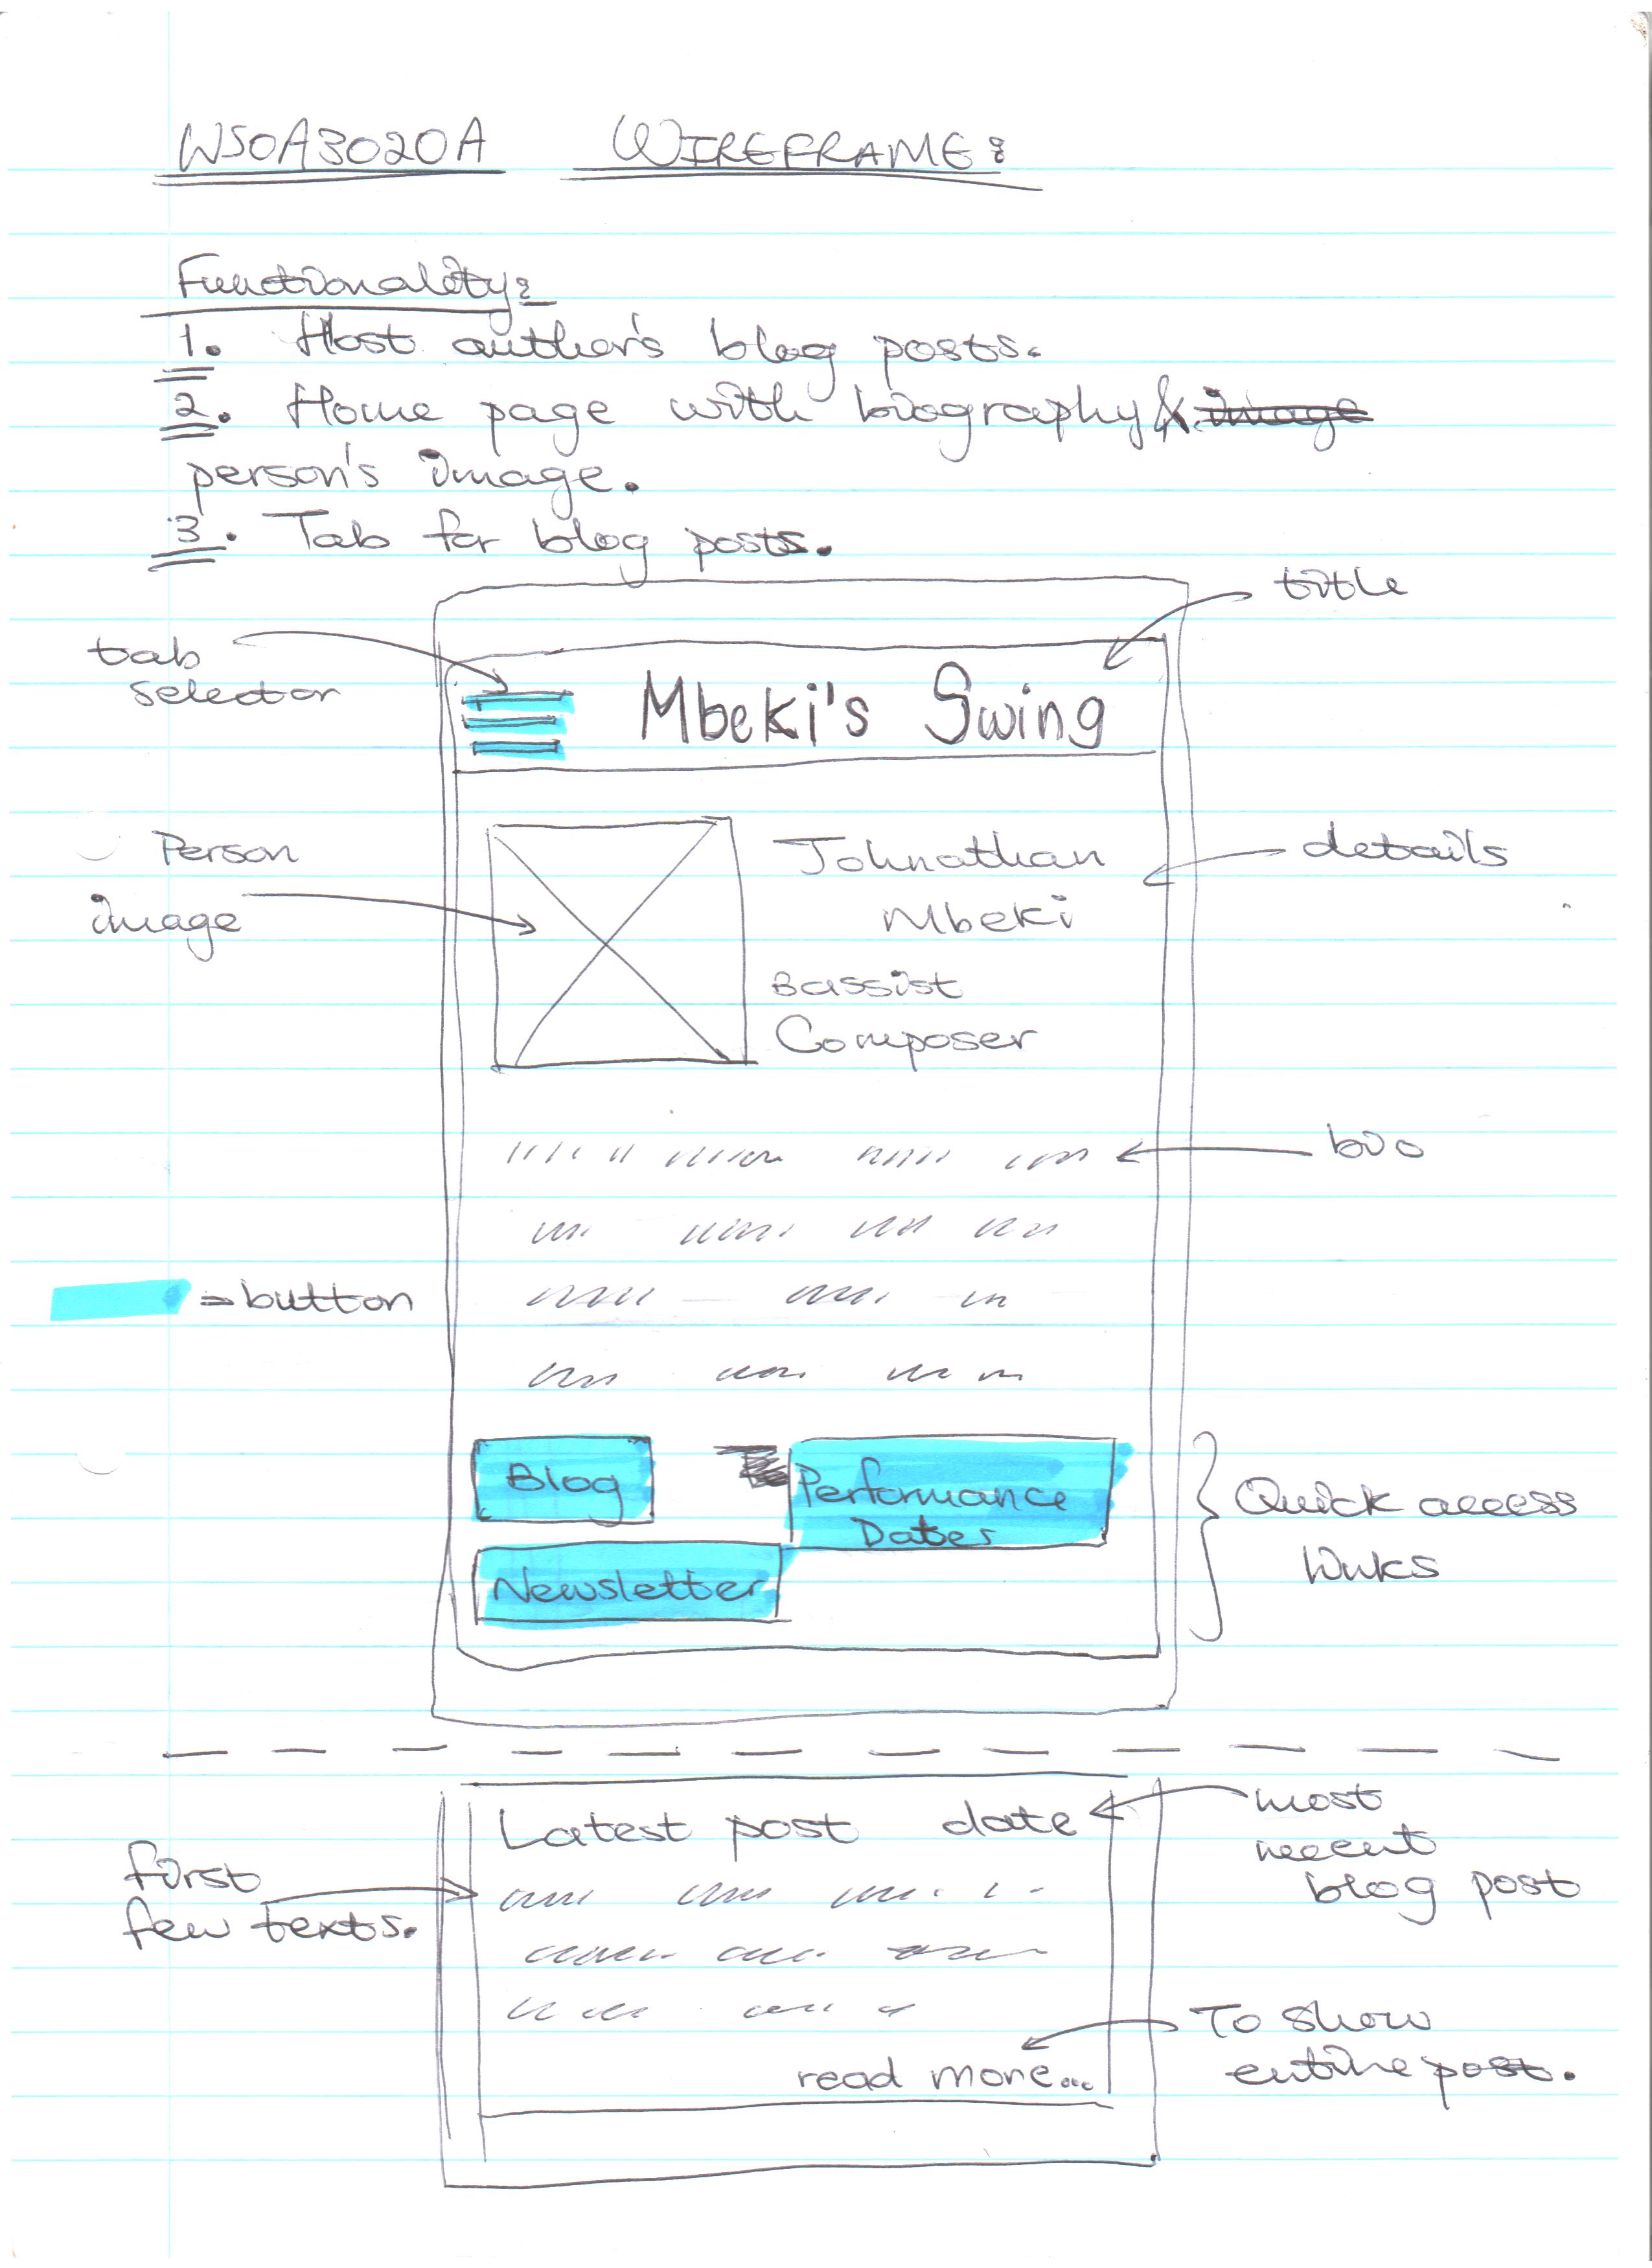 WSOA3020A WIREFRAME:
Functionality:
1. Host author's blog posts.
2. Home page with biography & image
person's image.
3. Tab for blog posts.
title
tab
selector
Mbeki's Swing
Person
image
Johnathan
Mbeki
Bassist
Composer
details
bio
= button
Blog
Performance
Dates
Newsletter
Quick access
links
Latest post date
most
recent
blog post
first
few texts.
read more...
To show
entire post.